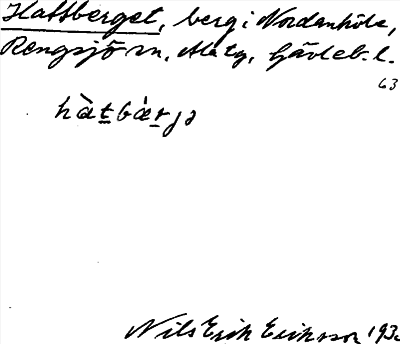 Hattberget, berg i Nordanhöle,
Rengsjö sn, Ala tg, Gävleb. l.
63
hàtbæ̀rjə
Nils Erik Eriksson 193